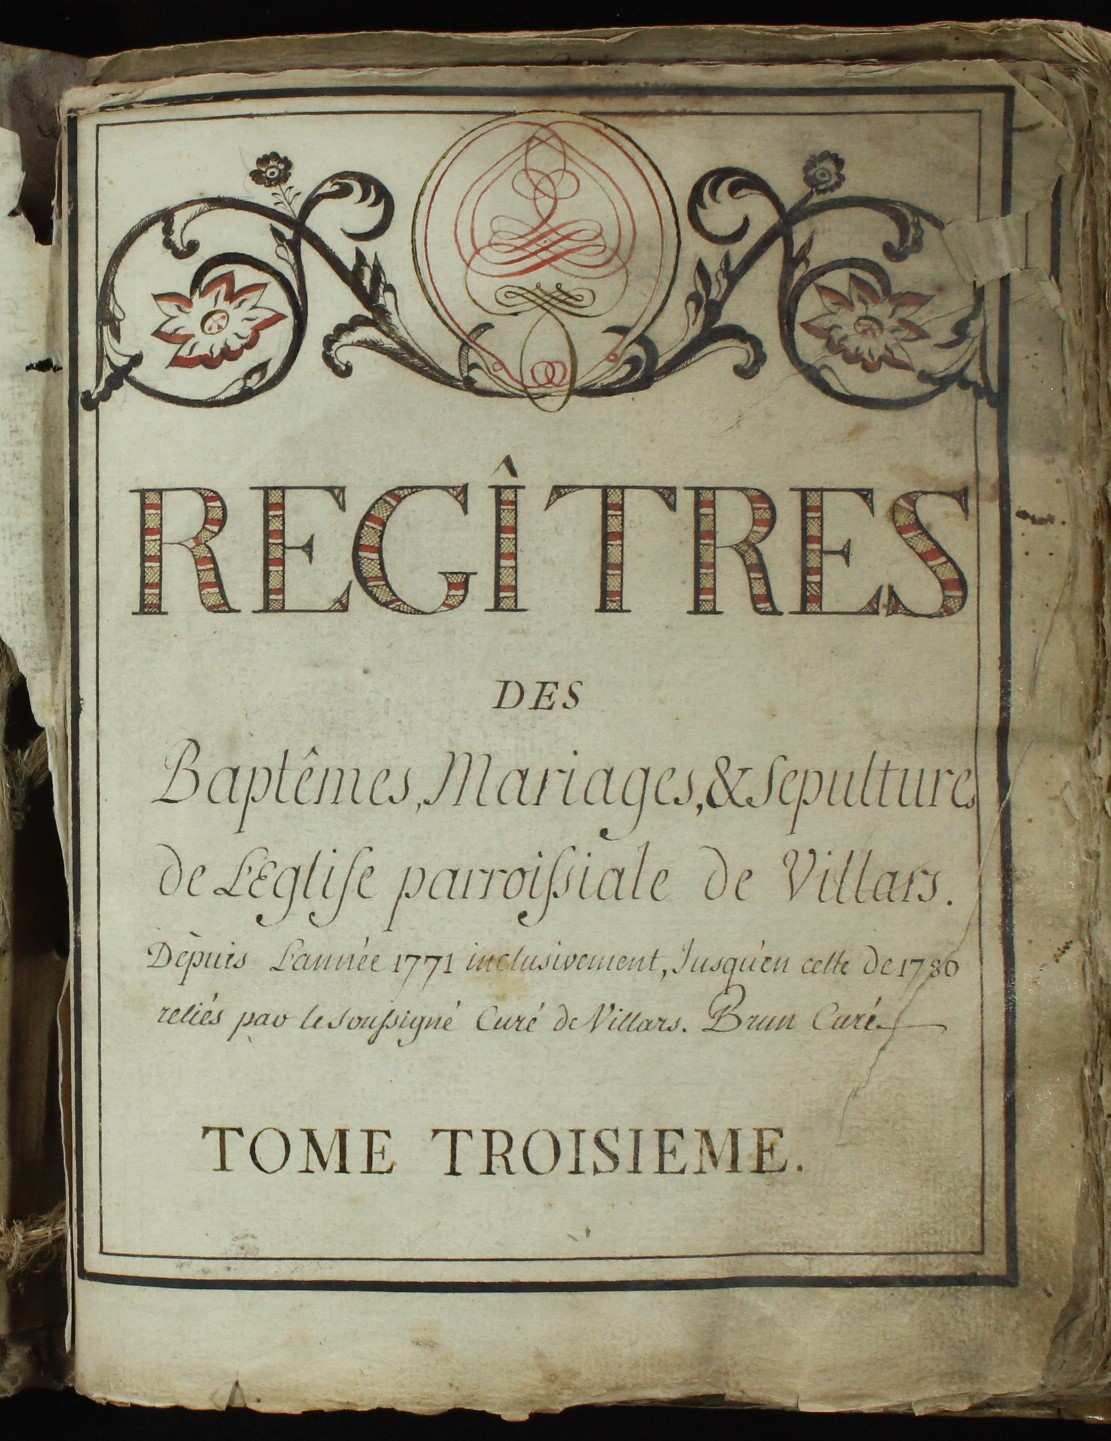 REGÎTRES
DES
Baptêmes, Mariages, & Sepultures
de L'Eglise parroissiale de Villars.
Depuis L'année 1771 inclusivement, Jusqu'en celle de 1786
reliés par le soussigné Curé de Villars. Brun Curé
TOME TROISIEME.